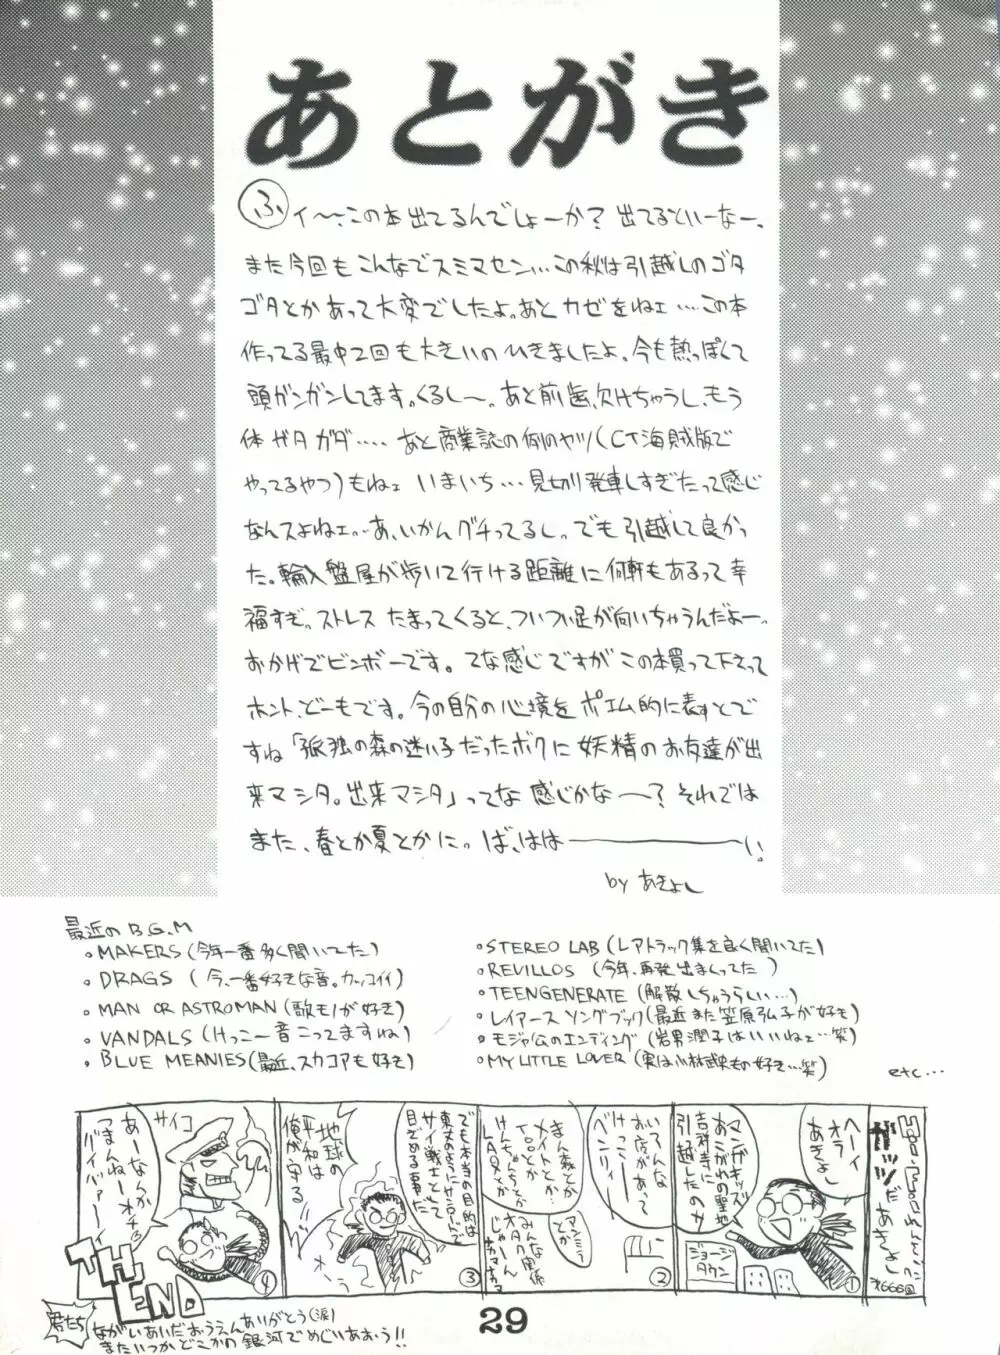 あとがき
ふィ〜、この本出てるんでしょーか？出てるといーなー、
また今回もこんなでスミマセン…この秋は引越しのゴタ
ゴタとかあって大変でしたよ。あとカゼをねェ…この本
作ってる最中2回も大きいのひきましたよ、今も熱っぽくて
頭ガンガンしてます。くるし〜。あと前歯、欠けちゃうし、もう
体ガタガタ‥‥ あと商業誌の例のヤツ(CT海賊版で
やってるやつ)もねェ いまいち…見切り発車しすぎたって感じ
なんスよねェ…あ、いかんグチってるし。でも引越して良かっ
た。輸入盤屋が歩いて行ける距離に何軒もあるって幸
福すぎ。ストレスたまってくると、ついつい足が向いちゃうんだよー。
おかげでビンボーです。てな感じですがこの本買って下さって
ホント、どーもです。今の自分の心境をポエム的に表すとで
すね「孤独の森の迷い子だったボクに妖精のお友達が出
来マシタ。出来マシタ」ってな感じかな〜？それでは
また、春とか夏とかに。ば、はは――い!
by あきよし
最近のB.G.M
。MAKERS(今年一番多く聞いてた)
。DRAGS (今、一番好きな音。カッコイイ)
。MAN OR ASTROMAN(歌モノが好き)
。VANDALS(けっこー音こってますね)
。BLUE MEANIES(最近、スカコアも好き)
。STEREO LAB(レアトラック集を良く聞いてた)
。REVILLOS (今年、再発出まくってた)
。TEENGENERATE(解散しちゃうらしい…)
。レイアース ソングブック(最近また笠原弘子が好も)
。モジャ公のエンディング(岩男潤子はいいねェ…笑)
。MY LITTLE LOVER(実は小林武史もの好き…笑)
etc…
ガッツだあきよし
オ666回
ヘーイ
オラ
あきよし
マンガキッズ
あこがれの聖地
吉祥寺に
引越したのサ
ジョージ
タウン
①
いろんな
お店があって
けっこー
ベンリィー
まん森とか
メイトとか…
TOとか
けんちゃんとか
LAOXとか
マンミィー
とか
みんな
オタク関係
じゃーん
②
でも本当の目的は
東京のように
サイ戦士として
目ざめる事だ
地球の
平和は
俺が守る!!
③
サイコ
あーなんか
つまんねーオチ
バイバァーイ
④
TH END
君たち
ながいあいだおうえんありがとう(涙)
またいつかどこかの銀河でめぐりあおう!!
29